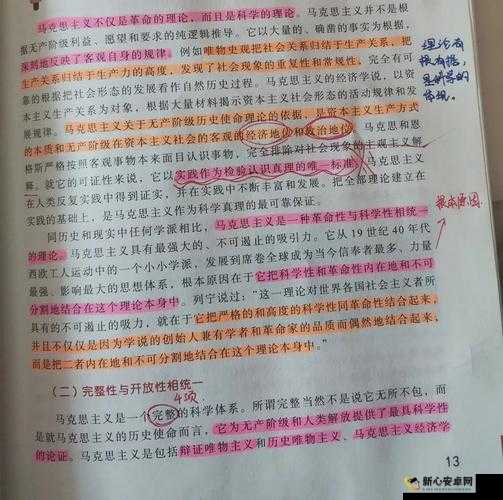 马克思主义不仅是革命的理论，而且是科学的理论。马克思主义并不是根
据无产阶级利益、愿望和要求的纯逻辑推导。它以大量的、确凿的事实为根据，
深刻地反映了客观自身的规律。例如唯物史观把社会关系归结于生产关系，把
生产关系归结于生产力的高度，发现了社会现象的重复性和常规性，完全有可
靠的根据把社会形态的发展看作自然历史过程。马克思主义的经济学说，以资
本主义生产关系为对象，根据大量材料揭示资本主义社会形态的活动规律和发
展规律。马克思主义关于无产阶级历史使命理论的依据，是资本主义生产方式
的本质和无产阶级在资本主义社会的客观的经济地位和政治地位。马克思和恩
格斯严格按照客观事物本来面目认识事物，完全排除对社会现象的主观主义解
释。就它的可证性来说，它以实践作为检验认识真理的唯一标准，马克思主义
在人类反复实践中得到证实，并在实践中不断丰富和发展。把全部理论建立在
实践的基础上，是马克思主义作为科学真理的最可靠保证。
同历史和现实中任何学派相比，马克思主义是一种革命性与科学性相统一
的理论。马克思主义具有最强大的、不可遏止的吸引力。它从19世纪40年代
西欧工人运动中的一个小小学派，发展到席卷全球成为当今信奉者最多、力量
最强、影响最大的思想体系，根本原因在于它把科学性和革命性内在地和不可
分割地结合在这个理论本身中。列宁说过：“这一理论对世界各国社会主义者所
具有的不可遏止的吸力，就在于它把严格的和高度的科学性同革命性结合起来，
并且不仅仅是因为学说的创始人兼有学者和革命家的品质而偶然地结合起来，
而是把二者内在地和不可分割地结合在这个理论本身中。”
（二）完整性与开放性相统一
4项
马克思主义是一个完整的科学体系。所谓完整当然不是说它无所不包，而
是就马克思主义的历史使命而言，它为无产阶级和人类解放提供了最具科学性
的论证。马克思主义是包括辩证唯物主义和历史唯物主义、马克思主义经济学
13
理论有
根有据，
是科学的
体现。
根本原因
新心安卓网